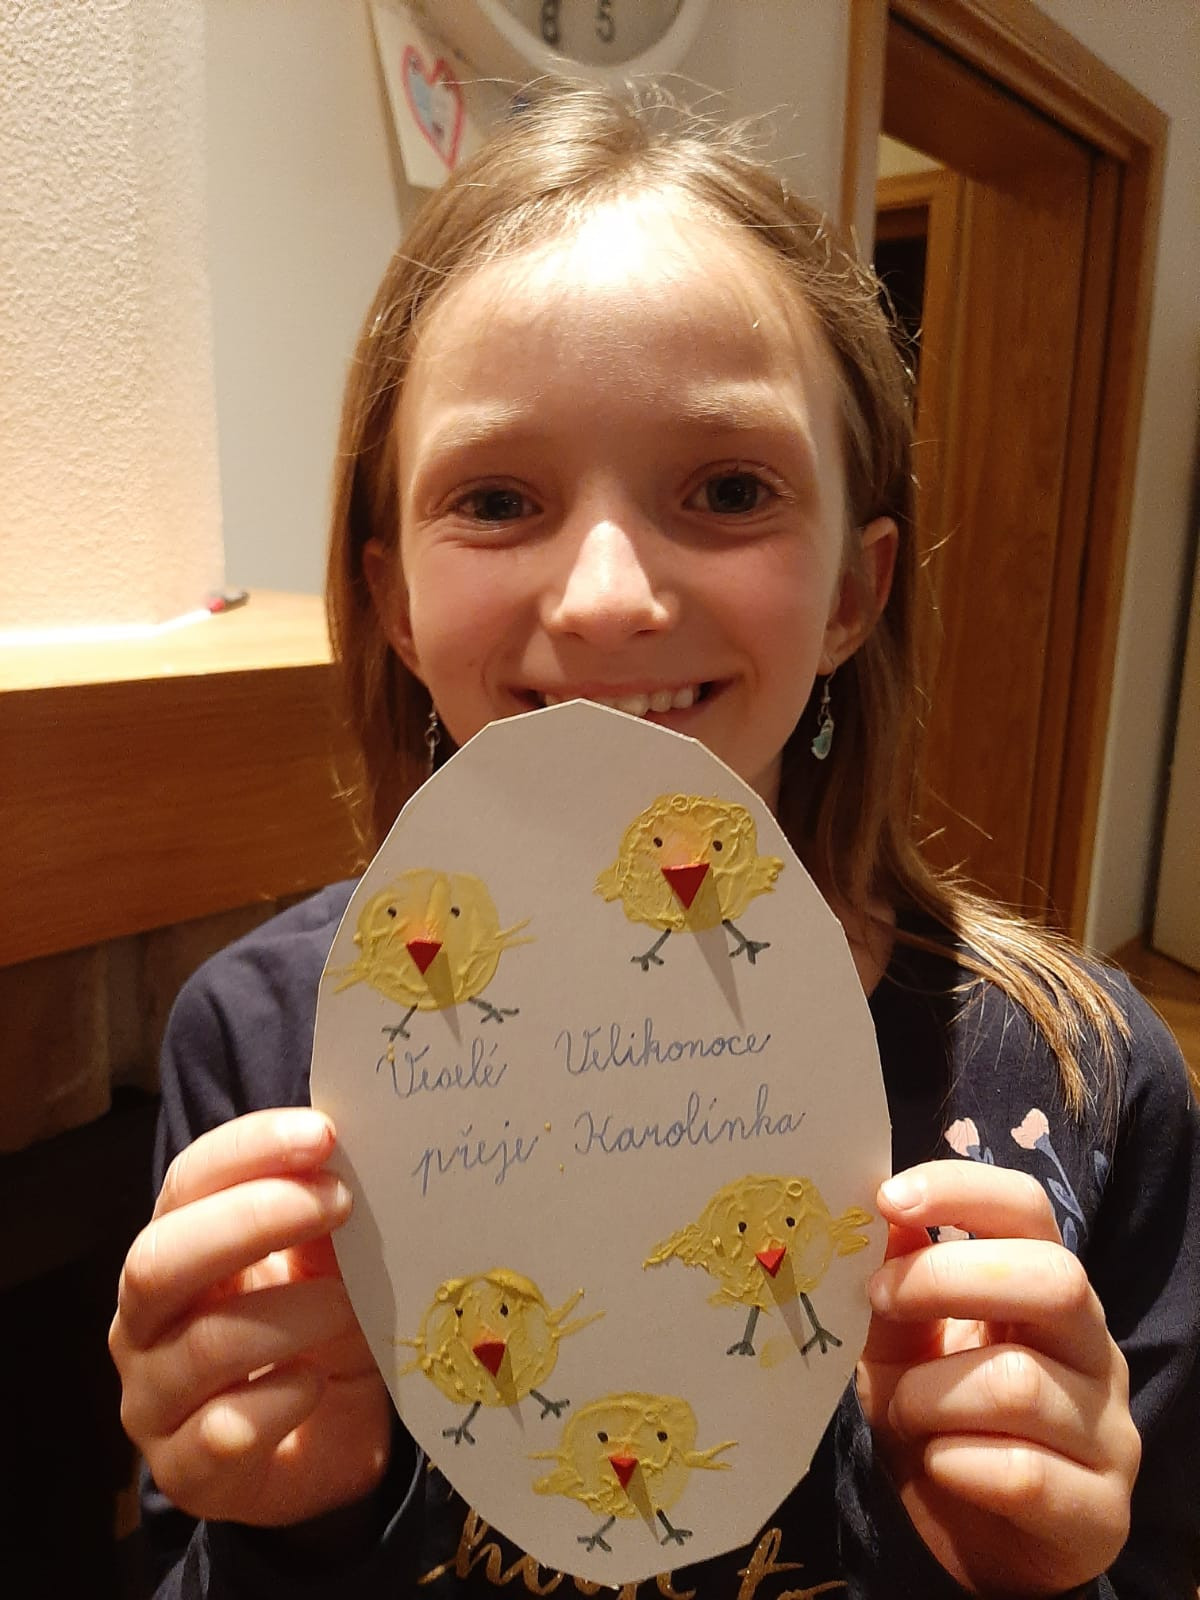 6 5
Veselé Velikonoce
přeje Karolínka